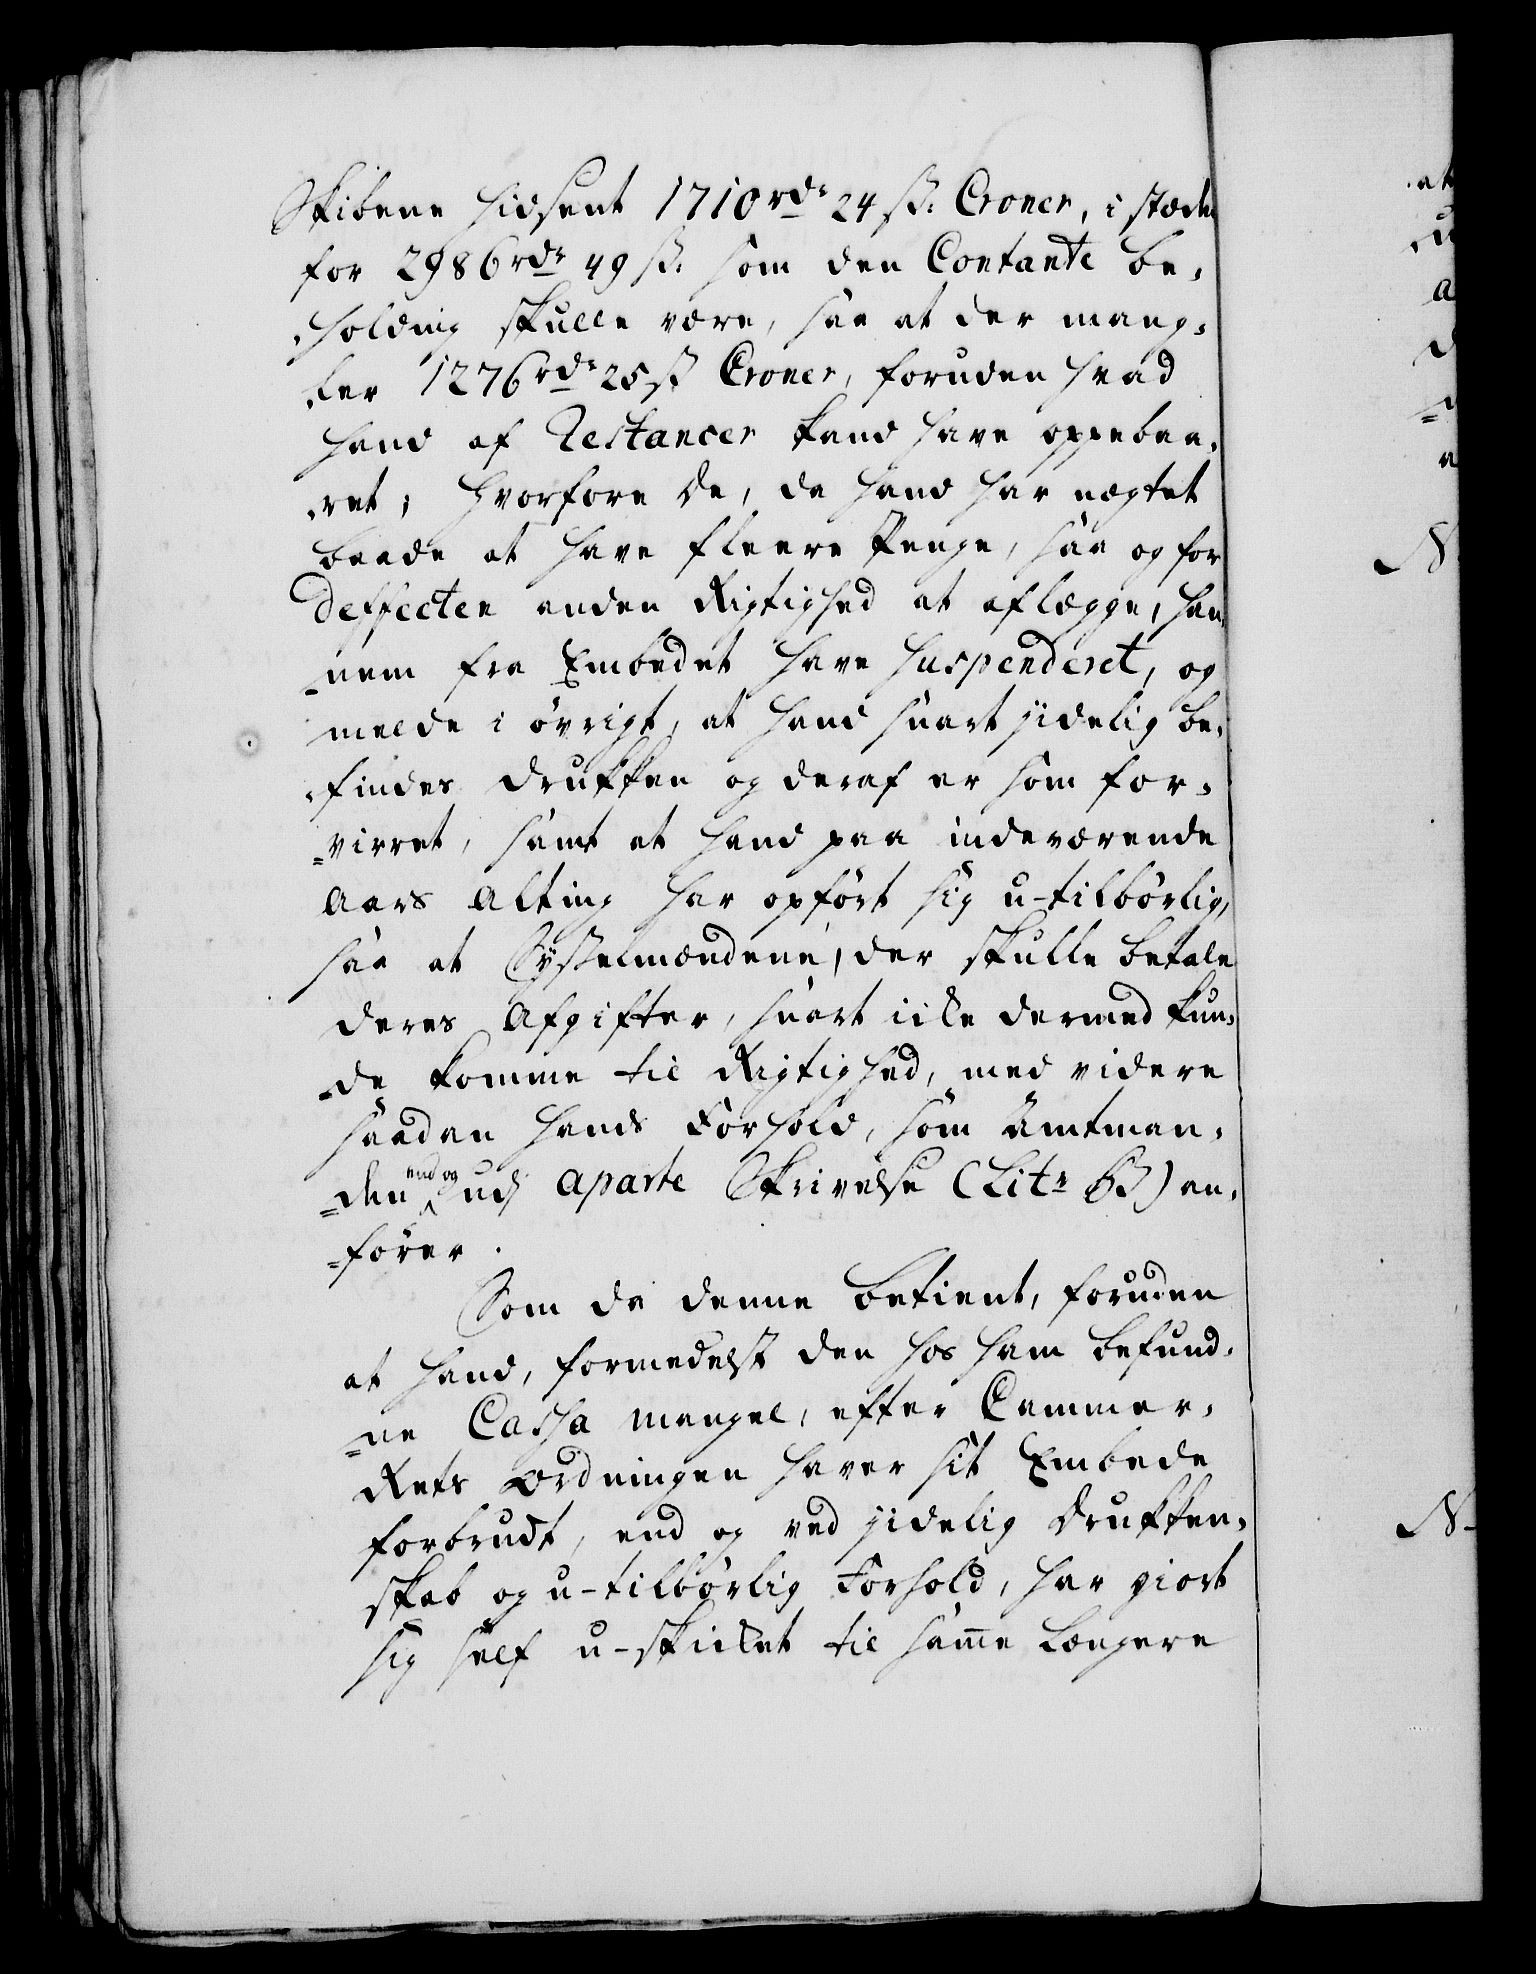 Skibene hidsent 1710 rdr 24 ß. Croner, i stæden
for 2986 rdr 49 ß. som den Contante be-
-holdning skulle være, saa at der mang-
-ler 1276 rdr 25 ß Croner, foruden hvad
hand af Restancer kand have oppebaa-
-ret; hvorfore de, da hand har nægtet
baade at have fleere Penge, saa og for
deffecten anden Rigtighed at aflægge, han-
-nem fra Embedet have suspenderet, og
melde i øvrigt, at hand snart jidelig be-
-findes drukken og deraf er som for-
-virret, samt at hand paa indeværende
Aars Alting har opført sig u-tilbørlig,
saa at Sysselmændene, der skulle betale
deres Afgifter, snart icke dermed kun-
-de komme til Rigtighed, med videre
saadan hands Forhold, som Amtman-
-den end og udj aparte Skrivelse (Litr B) an-
-fører.
Som da denne betient, foruden
at hand, formedelst den hos ham befund-
-ne Cassa mangel, efter Cammer-
Rets Ordningen haver sit Embede
forbrudt, end og ved jidelig Drukken-
skab og u-tilbørlig Forhold, har giort
sig self u-skicket til samme længere
at
N
N-